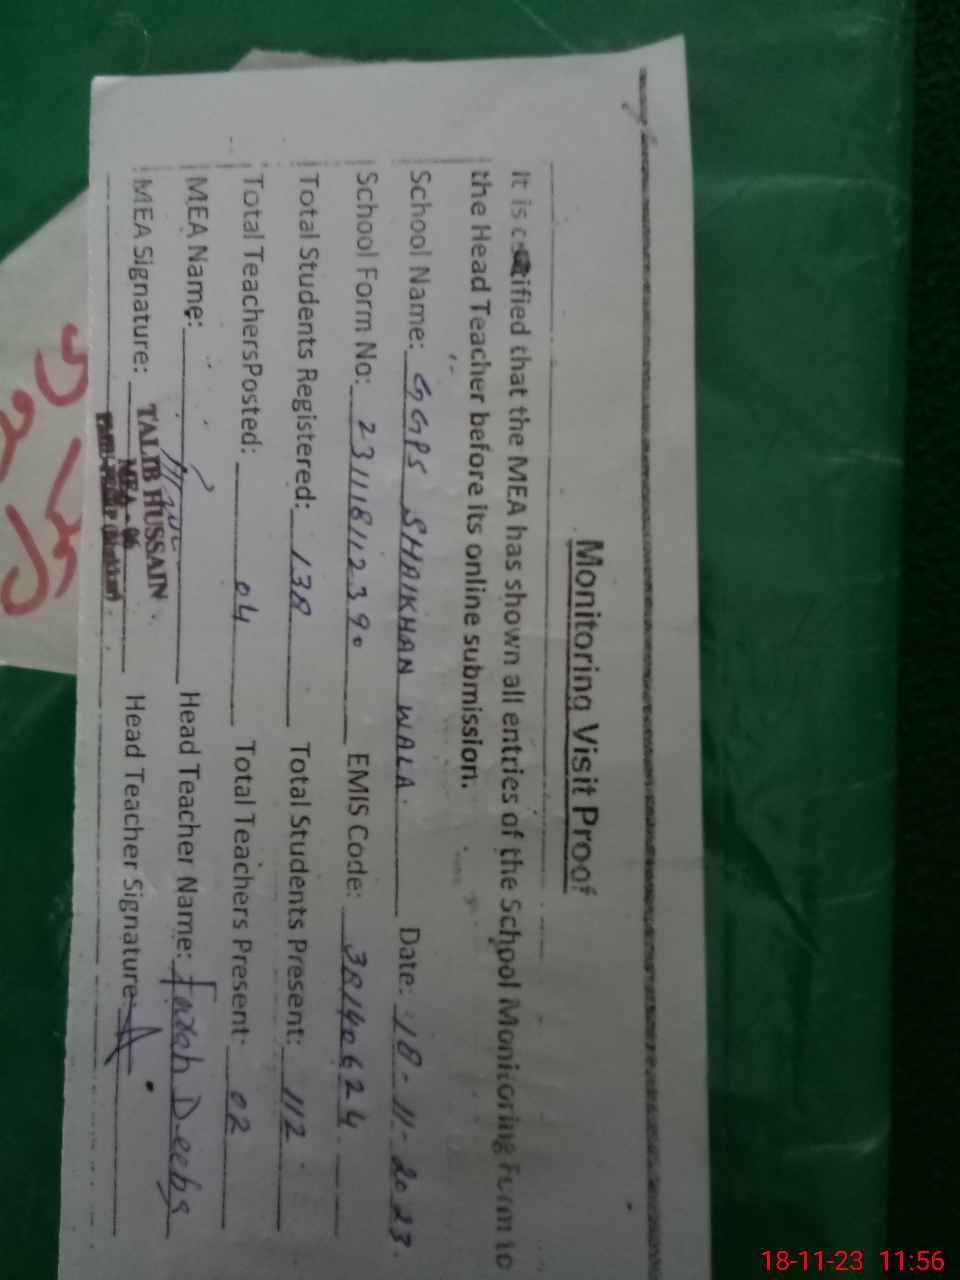 Monitoring Visit Proof
It is certified that the MEA has shown all entries of the School Monitoring Form to
the Head Teacher before its online submission.
School Name: GGPS SHAIKHAN WALA. Date: 18-11-2023.
School Form No: 231118112390 EMIS Code: 38140624
Total Students Registered: 138 Total Students Present: 112
Total TeachersPosted: 04 Total Teachers Present: 02
MEA Name: Head Teacher Name: Farah Deeba
MEA Signature: TALIB HUSSAIN Head Teacher Signature:
MEA - 06
18-11-23 11:56